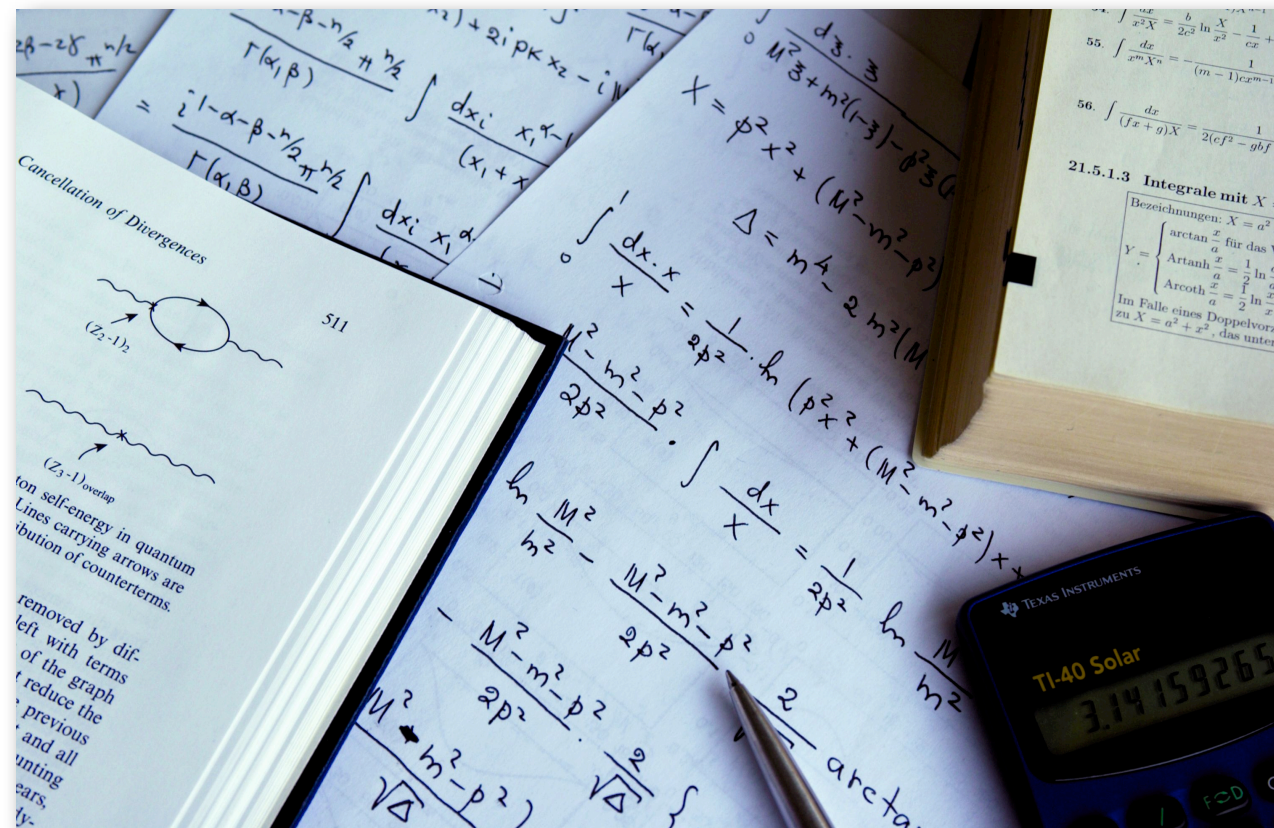 Cancellation of Divergences
511
(Z₂-1)₂
(Z₃-1)overlap
ton self-energy in quantum
Lines carrying arrows are
ibution of counterterms.
removed by dif-
left with terms
of the graph
reduce the
previous
and all
unting
ears,
dy-
2β-2γ π^n/2
Γ(α,β)
= i^1-α-β-n/2 π^n/2
Γ(α,β)
∫ dxi x₁^α-1
(x₁+x
∫ dxi x₁^α-
) + 2ipkx₂ - i
∫₀ d3·3
M²3+m²(1-3)-p²3(
X = p²x² + (M²-m²-p²)
Δ = m⁴ - 2m²(M
∫₀¹ dx·x / X = 1/2p² · ln (p²x² + (M²-m²-p²)x +
M²-m²-p² / 2p² · ∫ dx / X = 1/2p² ln M / m²
ln M²/m² - M²-m²-p² / 2p² 2
arcta
- M²-m²-p² / 2p² · 2/√Δ {
M² m²-p²)
√Δ √Δ
∫ dx / x²X = b / 2c² ln X / x² - 1 / cx +
55. ∫ dx / x^m X^n = - 1 / (m-1)cx^m-1
56. ∫ dx / (fx+g)X = 1 / 2(cf²-gbf
21.5.1.3 Integrale mit X =
Bezeichnungen: X = a²
Y = { arctan x/a für das
Artanh x/a = 1/2 ln
Arcoth x/a = 1/2 ln
Im Falle eines Doppelvorz
zu X = a² + x², das unter
TEXAS INSTRUMENTS
TI-40 Solar
3.14159265
F⇄D